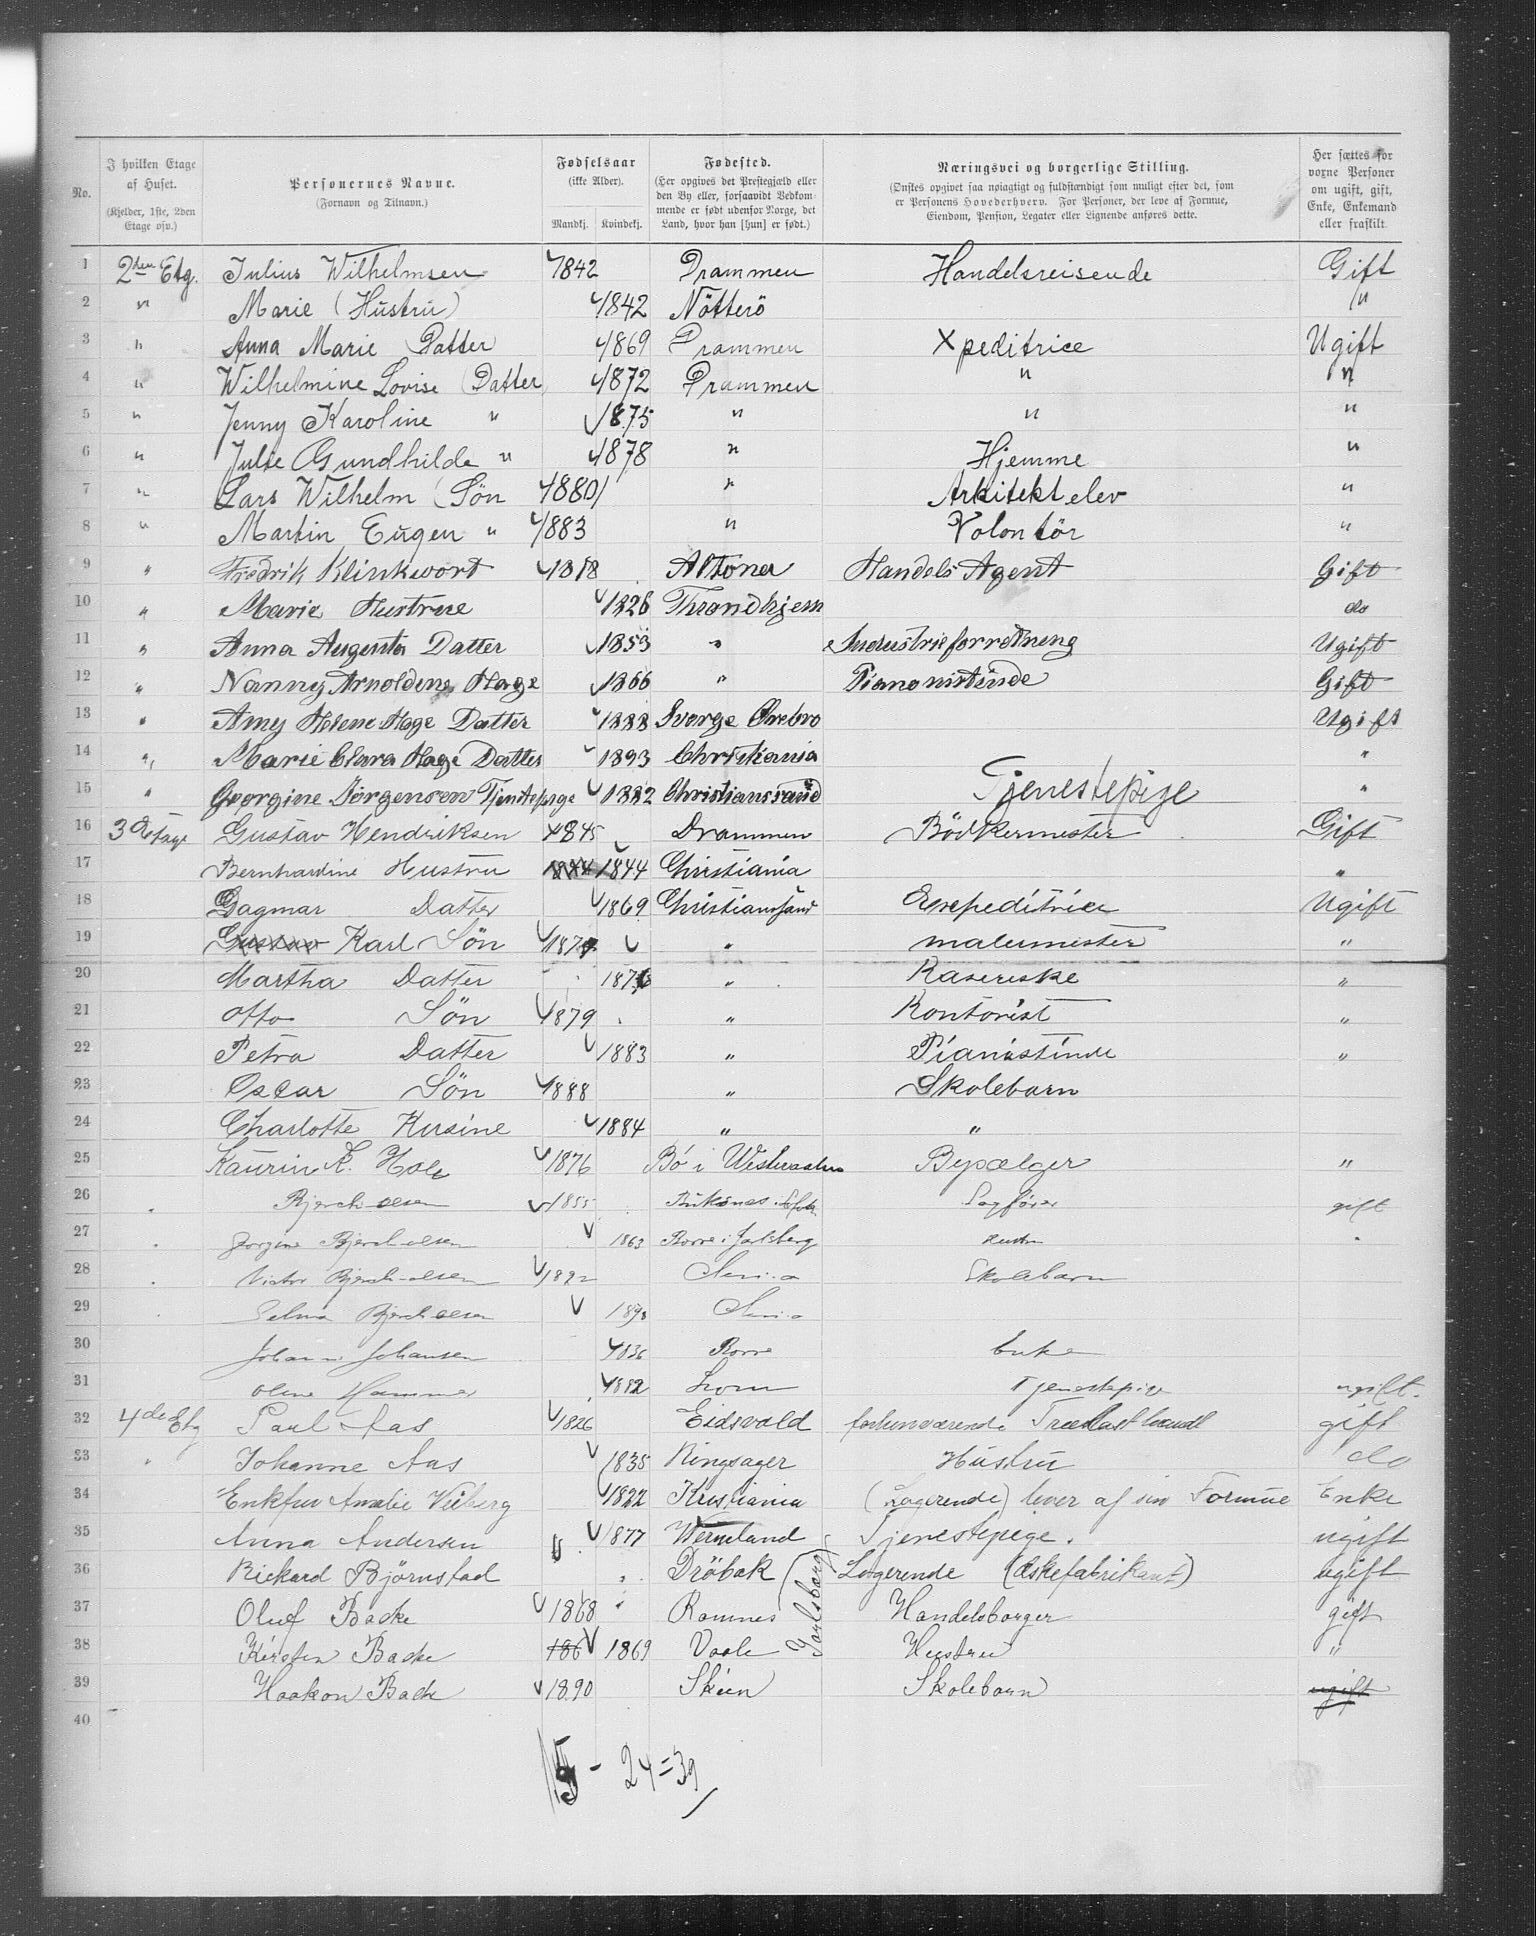 No.
I hvilken Etage af Huset. (Kjelder, 1ste, 2den Etage osv.)
Personernes Navne. (Fornavn og Tilnavn.)
Fødselsaar (ikke Alder). Mandkj. Kvindekj.
Fødested. (Her opgives det Prestegjæld eller den By eller, forsaavidt Vedkommende er født udenfor Norge, det Land, hvor han [hun] er født.)
Næringsvei og borgerlige Stilling. (Ønskes opgivet saa nøiagtigt og fuldstændigt som muligt efter det, som er Personens Hovederhverv. For Personer, der leve af Formue, Eiendom, Pension, Legater eller Lignende anføres dette.
Her sættes for voxne Personer om ugift, gift, Enke, Enkemand eller fraskilt.
1 2den Etg. Julius Wilhelmsen 1842 Drammen Handelsreisende Gift
2 " Marie (Hustru) 1842 Nötterö "
3 " Anna Marie Datter 1869 Drammen Xpeditrice Ugift
4 " Wilhelmine Lovise (Datter) 1872 Drammen " "
5 " Jenny Karoline " 1875 " " "
6 " Julie Gundhilde " 1878 " Hjemme "
7 " Lars Wilhelm (Sön 1880 " Arkitekt elev "
8 " Martin Eugen " 1883 " Volontör "
9 " Fredrik Klinkwort 1818 Altona Handels Agent Gift
10 " Marie Hustrue 1826 Throndhjem do
11 " Anna Augusta Datter 1853 " Industrieforretning Ugift
12 " Nanny Arnoldene Hage 1866 " Pianonistinde Gift
13 " Amy Helene Hage Datter 1888 Sverge Örebro Ugift
14 " Marie Clara Hage Datter 1893 Christiania "
15 " Georgine Jörgensen Tjenstepige 1882 Christianssand Tjenestepige "
16 3 Etage Gustav Hendriksen 1845 Drammen Bödkermester Gift
17 Bernhardine Hustru 1844 1844 Christiania "
18 Dagmar Datter 1869 Christianssand Exepeditrice Ugift
19 Gustav Karl Sön 187 " malermester "
20 Martha Datter 1876 " Kasereske "
21 Otto Sön 1879 " Kontorist "
22 Petra Datter 1883 " Pianistinde "
23 Oscar Sön 1888 " Skolebarn
24 Charlotte Kusine 1884 " "
25 Laurin K. Hole 1876 Bö i Westeraalen Bypælger "
26 Bjerch-Olsen 1855 Sagfører gift
27 Jorgine Bjerch-Olsen 1863 Borre i Jarlsberg Hustru "
28 Victor Bjerch-Olsen 1892 Skolebarn
29 Selma Bjerch-Olsen
30 Johanne Johansen 1836 Borre Enke
31 Oline Hammer 1882 Lom Tjenestepige ugift.
32 4de Etg Paul Aas 1826 Eidsvold forhenværende Trælasthandl gift
33 " Johanne Aas 1835 Ringsager Hustru do
34 Enkefru Amalie Wiberg 1822 Kristiania (Logerende) lever af sin Formue Enke
35 Anna Andersen 1877 Wermeland Tjenestepige. ugift
36 Rickard Björnstad Dröbak Logerende (Æskefabrikant) ugift
37 Oluf Backe 1868 Ramnes Jarlsberg Handelsborger gift
38 Kirsten Backe 186 1869 Vaale Hustru "
39 Haakon Backe 1890 Skien Skolebarn ugift
40
15 - 24 = 39